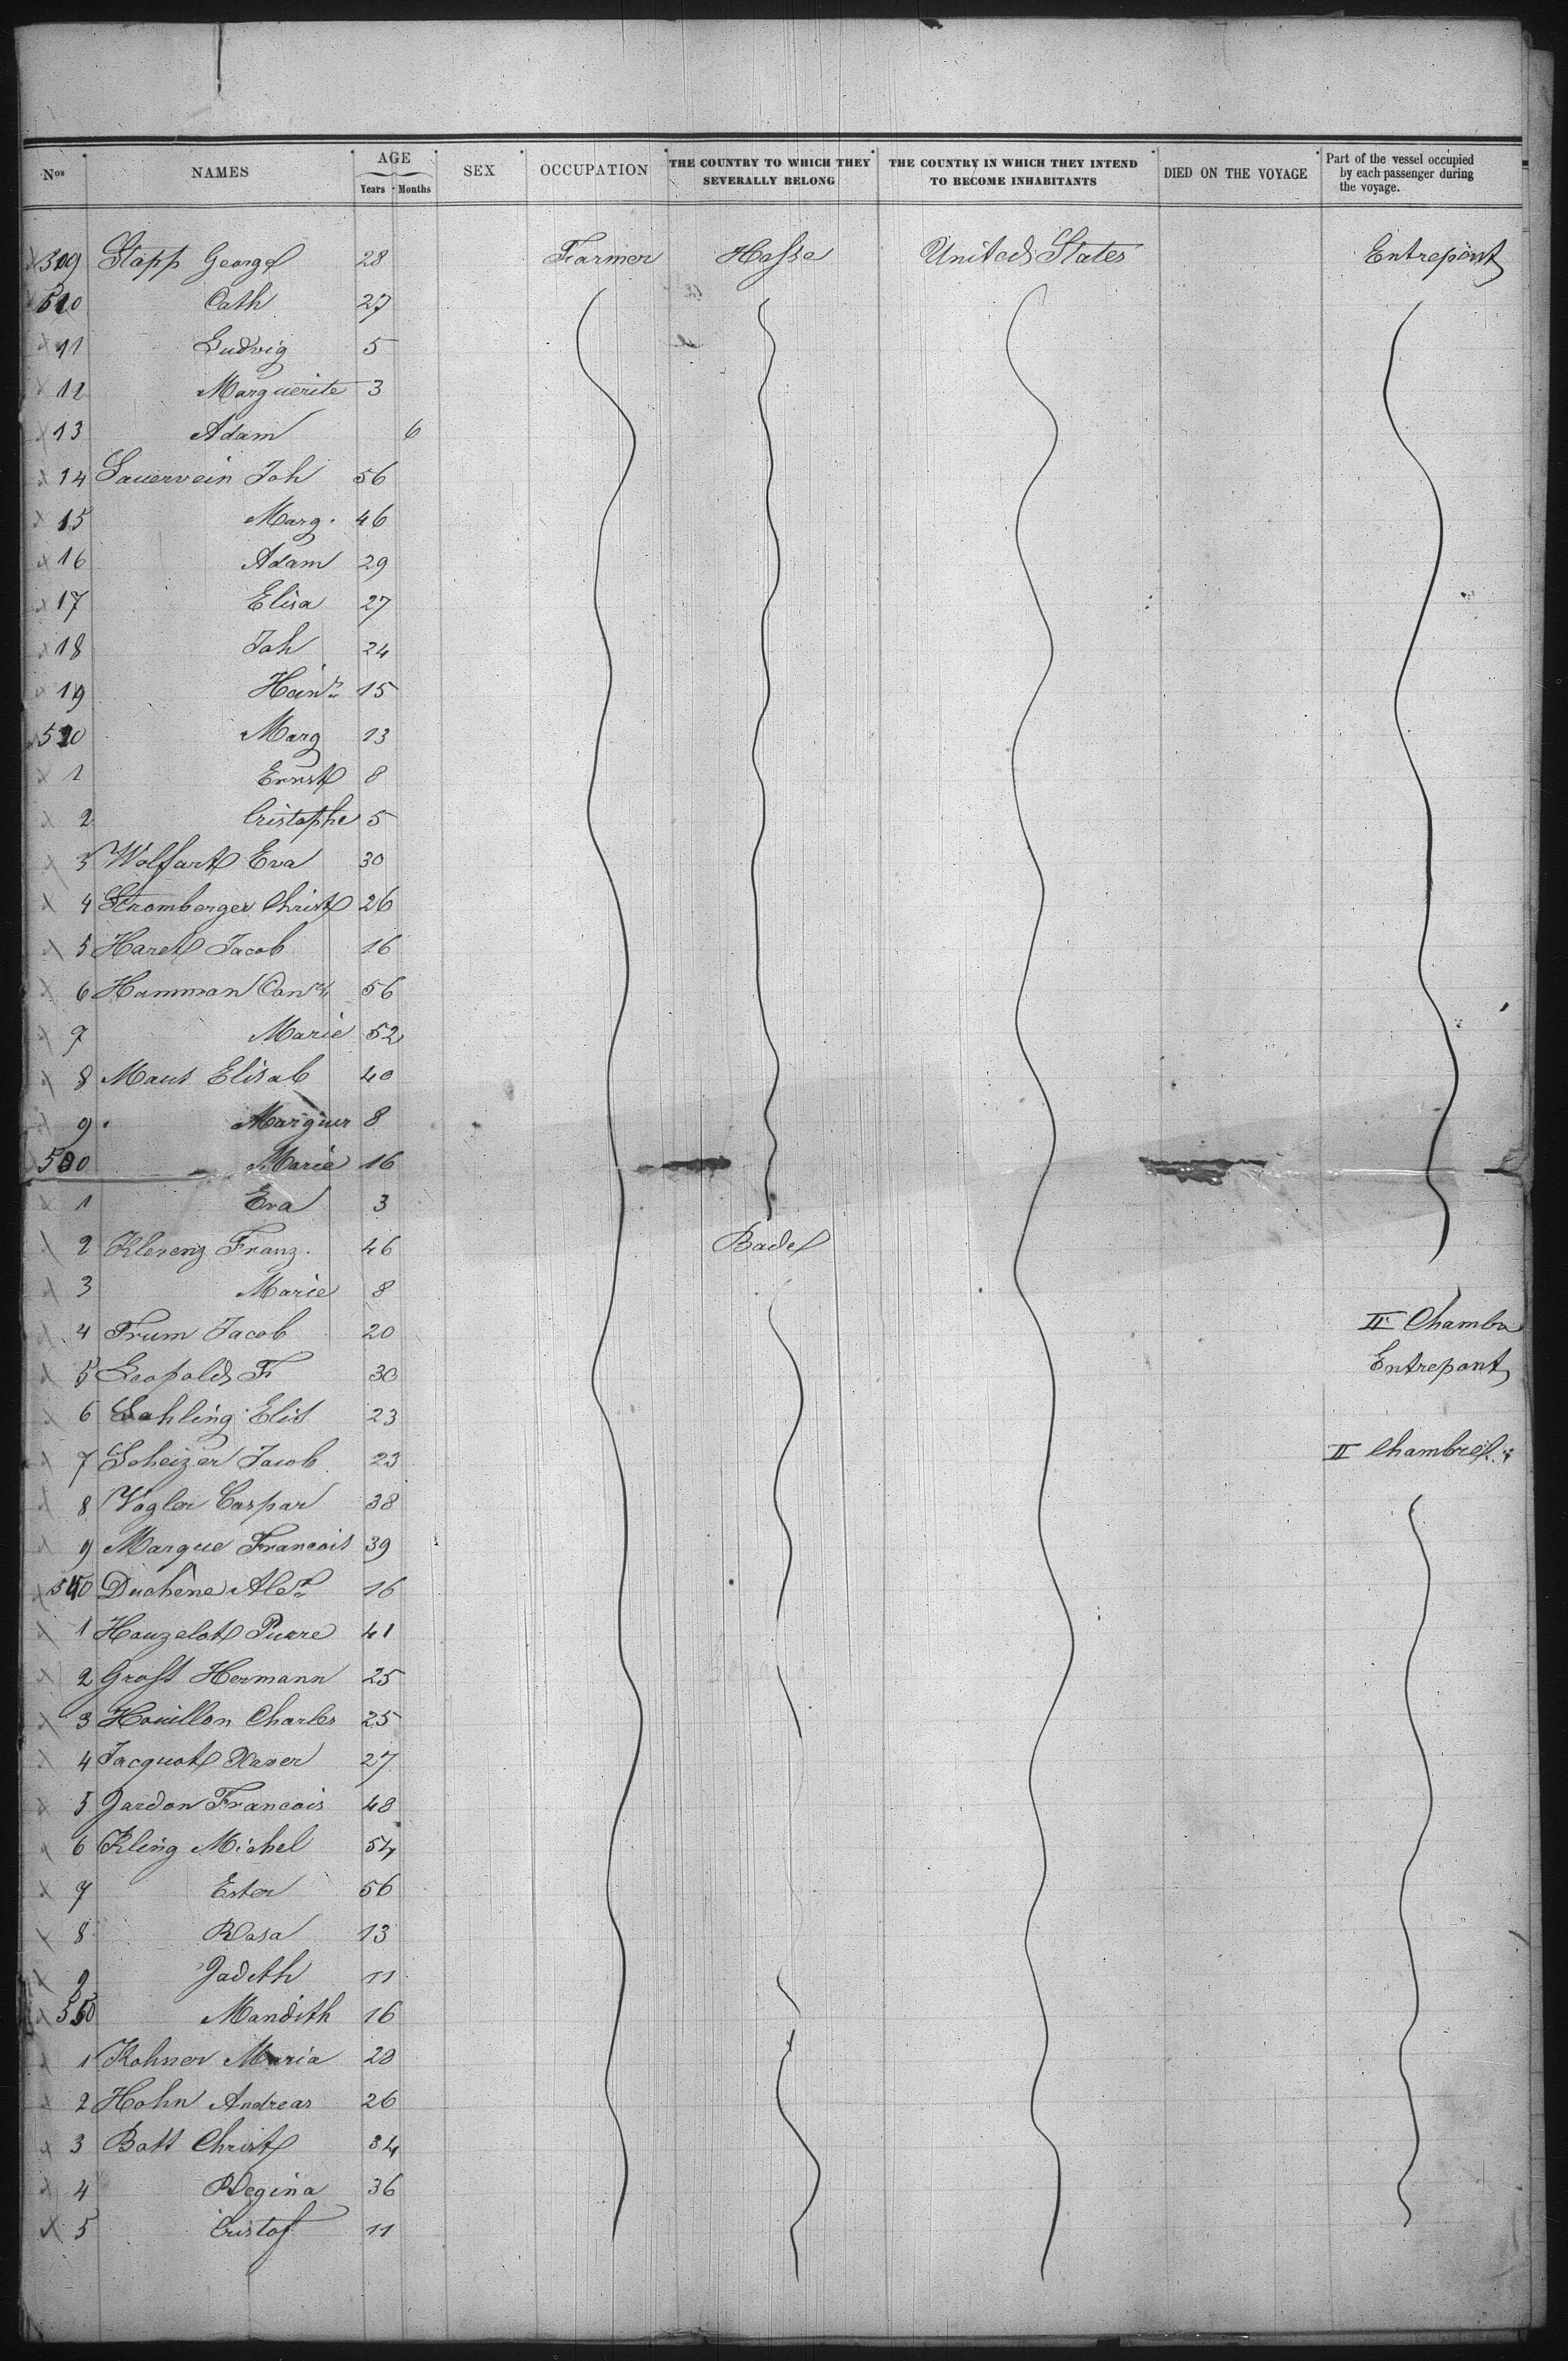 Nos NAMES AGE Years Months SEX OCCUPATION THE COUNTRY TO WHICH THEY SEVERALLY BELONG THE COUNTRY IN WHICH THEY INTEND TO BECOME INHABITANTS DIED ON THE VOYAGE Part of the vessel occupied by each passenger during the voyage.
309 Stapp George 28 Farmer Hesse United States Entrepont
510 Cath 27
11 Ludvig 5
12 Marguerite 3
13 Adam 6
14 Sauerwein Joh 56
15 Marg. 46
16 Adam 29
17 Elisa 27
18 Joh 24
19 Heinr 15
520 Marg 13
1 Ernst 8
2 Cristophe 5
3 Wolfart Eva 30
4 Stromberger Christ 26
5 Haret Jacob 16
6 Hamman Conr 56
7 Marie 52
8 Maus Elisab 40
9 Marguer 8
500 Marie 16
1 Eva 3
2 Klerenz Franz. 46 Bade
3 Marie 8
4 Frum Jacob 20 II Chambre
5 Leopold F 30 Entrepont
6 Sahling Elis 23
7 Scheizer Jacob 23 II Chambre
8 Vogler Caspar 38
9 Marque Francois 39
540 Duchêne Alex 16
1 Houzelot Pierre 41
2 Gross Hermann 25
3 Houillon Charles 25
4 Jacquot Xaver 27
5 Jardon Francois 48
6 Kling Michel 54
7 Ester 56
8 Rosa 13
9 Jadeth 11
550 Mandith 16
1 Kohner Maria 28
2 Hohn Andreas 26
3 Batt Christ 34
4 Regina 36
5 Cristof 11